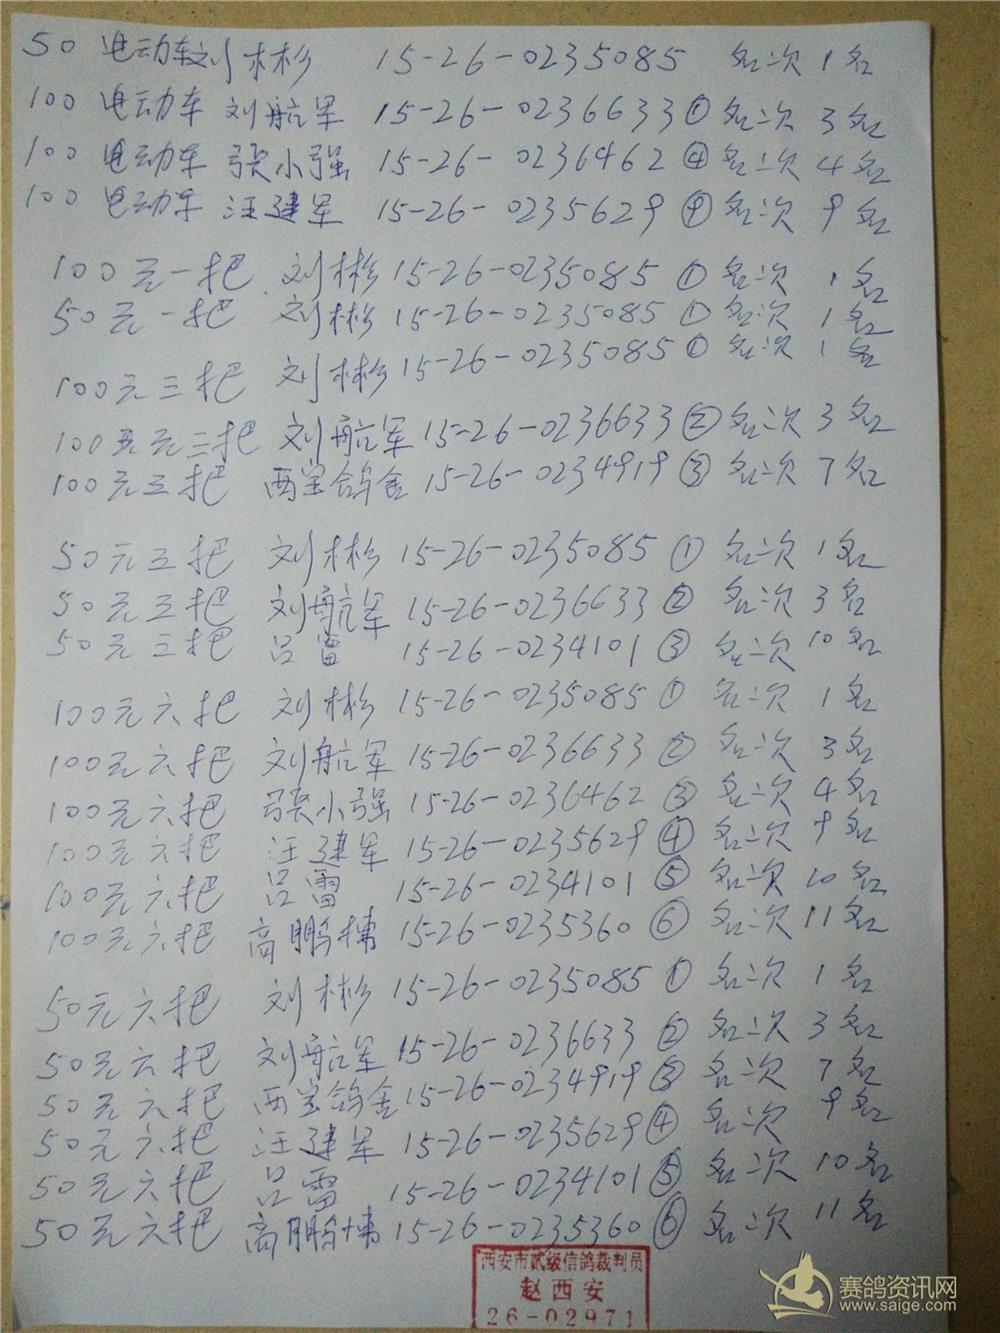 50 电动车刘彬彬 15-26-0235085 名次 1名
100 电动车 刘航军 15-26-0236633 ① 名次 3名
100 电动车 张小强 15-26-0236462 ④ 名次 4名
100 电动车 汪建军 15-26-0235629 ⑨ 名次 9名
100元一把 刘彬 15-26-0235085 ① 名次 1名
50元一把 刘彬 15-26-0235085 ① 名次 1名
100元三把 刘彬 15-26-0235085 ① 名次 1名
100元三把 刘航军 15-26-0236633 ② 名次 3名
100元三把 西宝鸽舍 15-26-0234919 ③ 名次 7名
50元三把 刘彬 15-26-0235085 ① 名次 1名
50元三把 刘航军 15-26-0236633 ② 名次 3名
50元三把 吕雷 15-26-0234101 ③ 名次 10名
100元六把 刘彬 15-26-0235085 ① 名次 1名
100元六把 刘航军 15-26-0236633 ② 名次 3名
100元六把 张小强 15-26-0236462 ③ 名次 4名
100元六把 汪建军 15-26-0235629 ④ 名次 9名
100元六把 吕雷 15-26-0234101 ⑤ 名次 10名
100元六把 高鹏博 15-26-0235360 ⑥ 名次 11名
50元六把 刘彬 15-26-0235085 ① 名次 1名
50元六把 刘航军 15-26-0236633 ② 名次 3名
50元六把 西宝鸽舍 15-26-0234919 ③ 名次 7名
50元六把 汪建军 15-26-0235629 ④ 名次 9名
50元六把 吕雷 15-26-0234101 ⑤ 名次 10名
50元六把 高鹏博 15-26-0235360 ⑥ 名次 11名
西安市贰级信鸽裁判员
赵西安
26-02971
赛鸽资讯网
www.saige.com